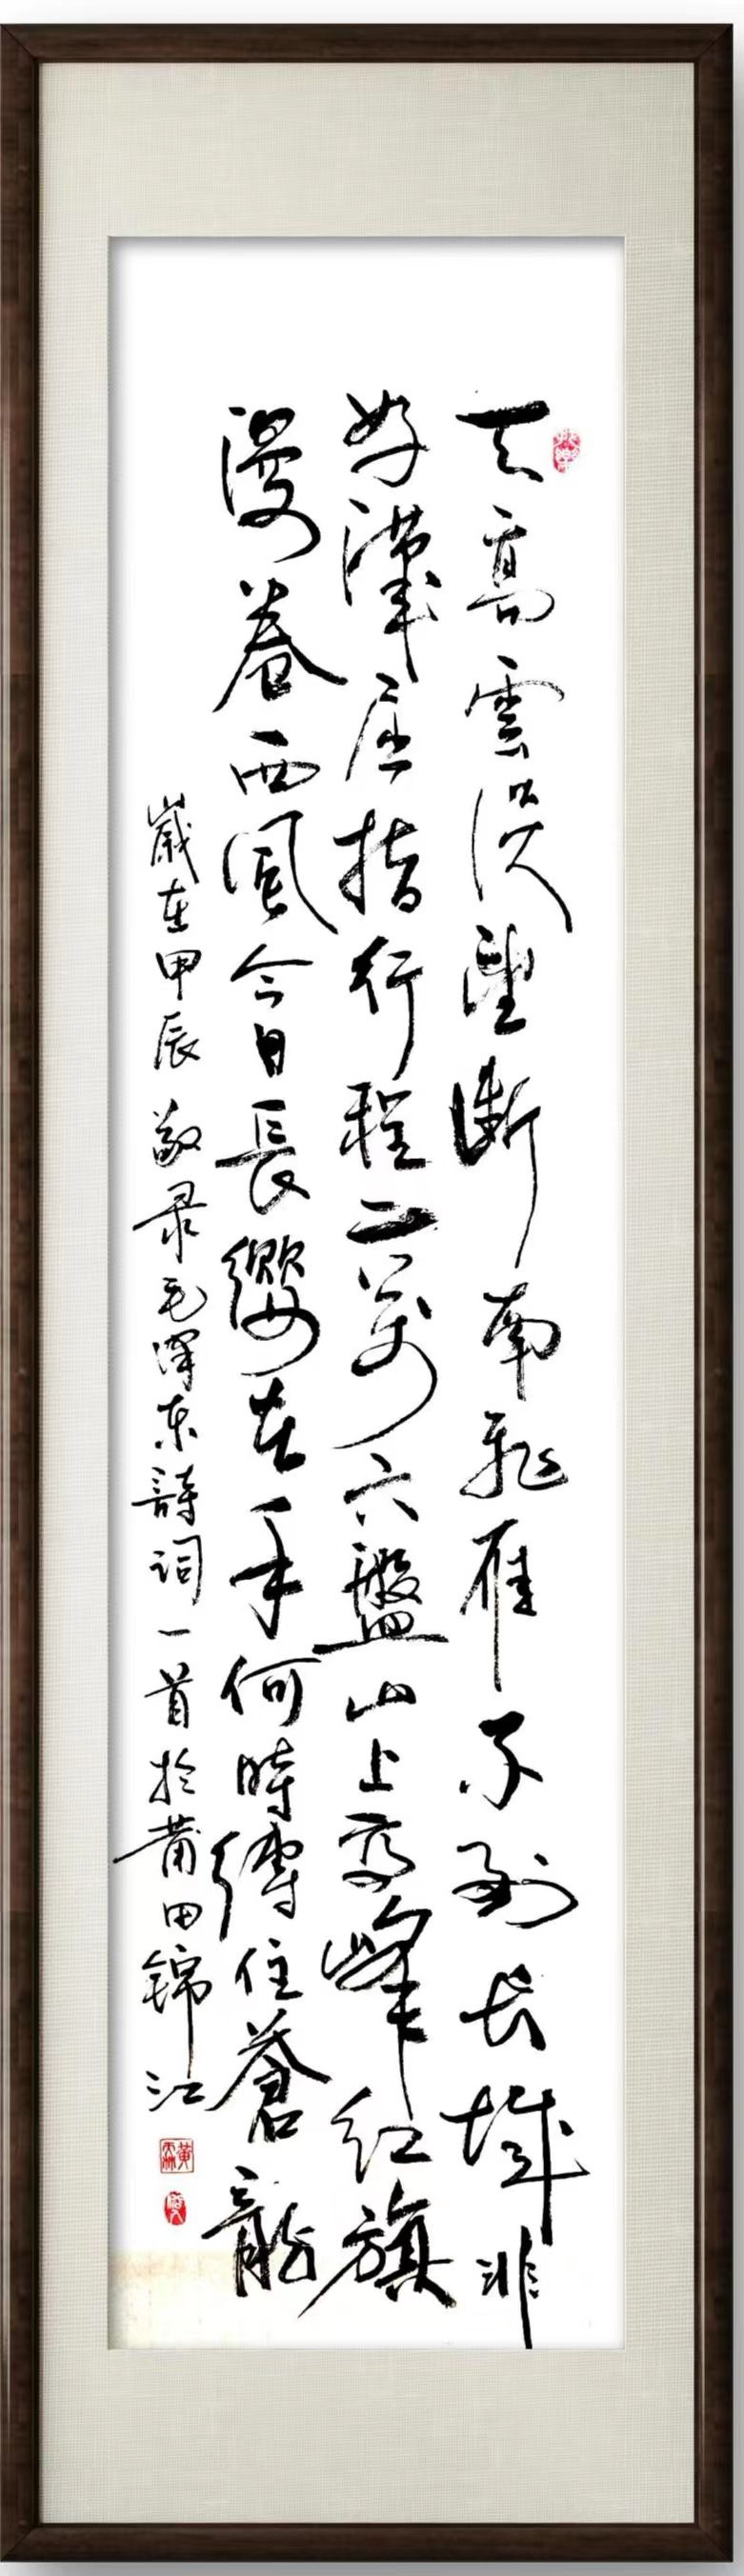 天高雲淡望斷南飛雁不到长城非
好漢屈指行程二萬六盤山上高峰红旗
漫卷西風今日長纓在手何時縛住蒼龍
歲在甲辰敬录毛泽东詩词一首於莆田锦江